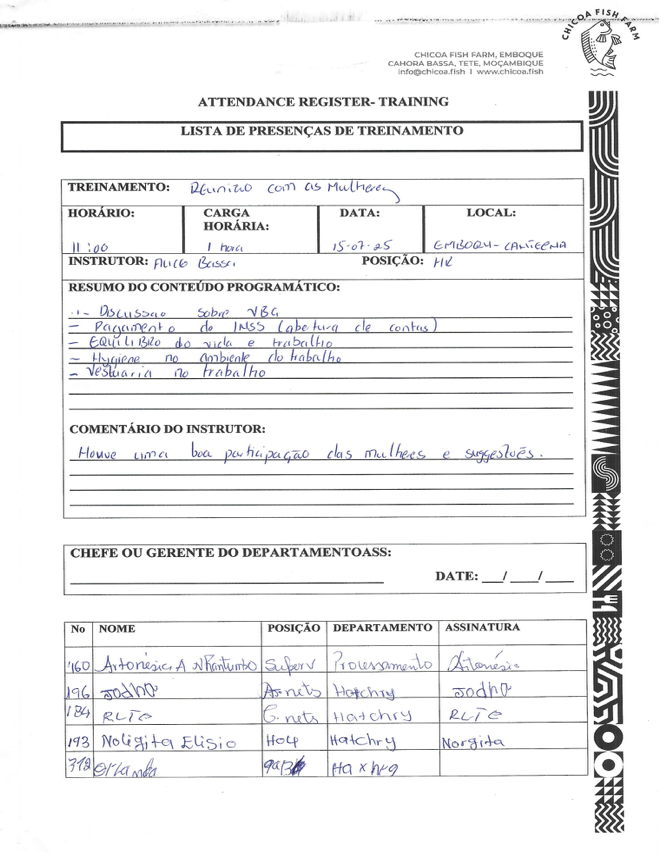 CHICOA FISH FARM
CHICOA FISH FARM, EMBOQUE
CAHORA BASSA, TETE, MOÇAMBIQUE
info@chicoa.fish | www.chicoa.fish
ATTENDANCE REGISTER- TRAINING
LISTA DE PRESENÇAS DE TREINAMENTO
TREINAMENTO: Reunião com as Mulheres
HORÁRIO: CARGA HORÁRIA: DATA: LOCAL:
11:00 1 hora 15-07-25 EMBOQU-CANTEENA
INSTRUTOR: POSIÇÃO: HR
RESUMO DO CONTEÚDO PROGRAMÁTICO:
- Discussao sobre VBG
- Pagamento do INSS (abertura de contas)
- EQUILIBRO do vida e trabalho
- Hygiene no ambiente do trabalho
- Vestuaria no trabalho
COMENTÁRIO DO INSTRUTOR:
Houve uma boa participação das mulheres e suggestões.
CHEFE OU GERENTE DO DEPARTAMENTOASS:
DATE: __/ __/ __
No NOME POSIÇÃO DEPARTAMENTO ASSINATURA
160 Artonésia A Nhantumbo Superv Processamento Artonésia
196 Jodho nets Hatchry Jodho
184 RLTO nets Hatchry RLTO
193 Noligita Elisio Hatchry Norgita
312 Orlanda